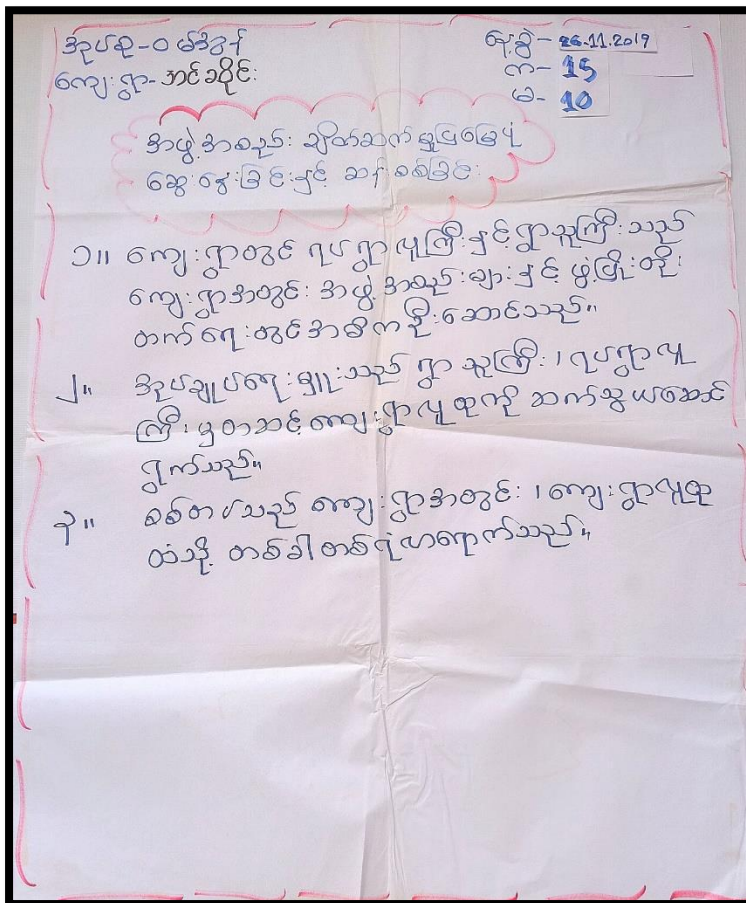 အုပ်စု-ဝမ်အွန်
နေ့စွဲ - 26.11.2019
ကျေးရွာ- အင်ခိုင်း
က - 15
မ - 10
အဖွဲ့အစည်း ချိတ်ဆက်မှုပြမြေပုံ
ဆွေးနွေးခြင်းနှင့် ဆန်းစစ်ခြင်း
၁။ ကျေးရွာတွင် ရပ်ရွာလူကြီးနှင့်ရွာသူကြီးသည်
ကျေးရွာအတွင်း အဖွဲ့အစည်းများနှင့် ဖွံ့ဖြိုးတိုး
တက်ရေးတွင်အဓိကဦးဆောင်သည်။
၂။ အုပ်ချုပ်ရေးမှူးသည် ရွာသူကြီး၊ ရပ်ရွာလူ
ကြီးမှတဆင့်ကျေးရွာလူထုကို ဆက်သွယ်ဆောင်
ရွက်သည်။
၃။ စစ်တပ်သည် ကျေးရွာအတွင်း၊ ကျေးရွာလူထု
ထံသို့ တစ်ခါတစ်ရံလာရောက်သည်။